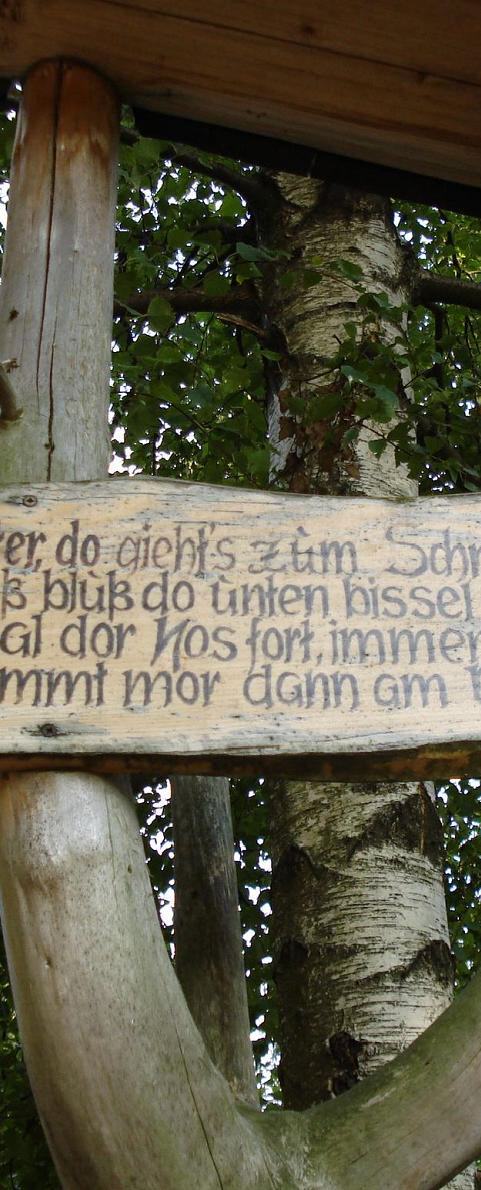 ter, do gieht's zùm Schn
ß blùß do ùnten bissel
al dor Nos fort, immer
mmt mor dann am